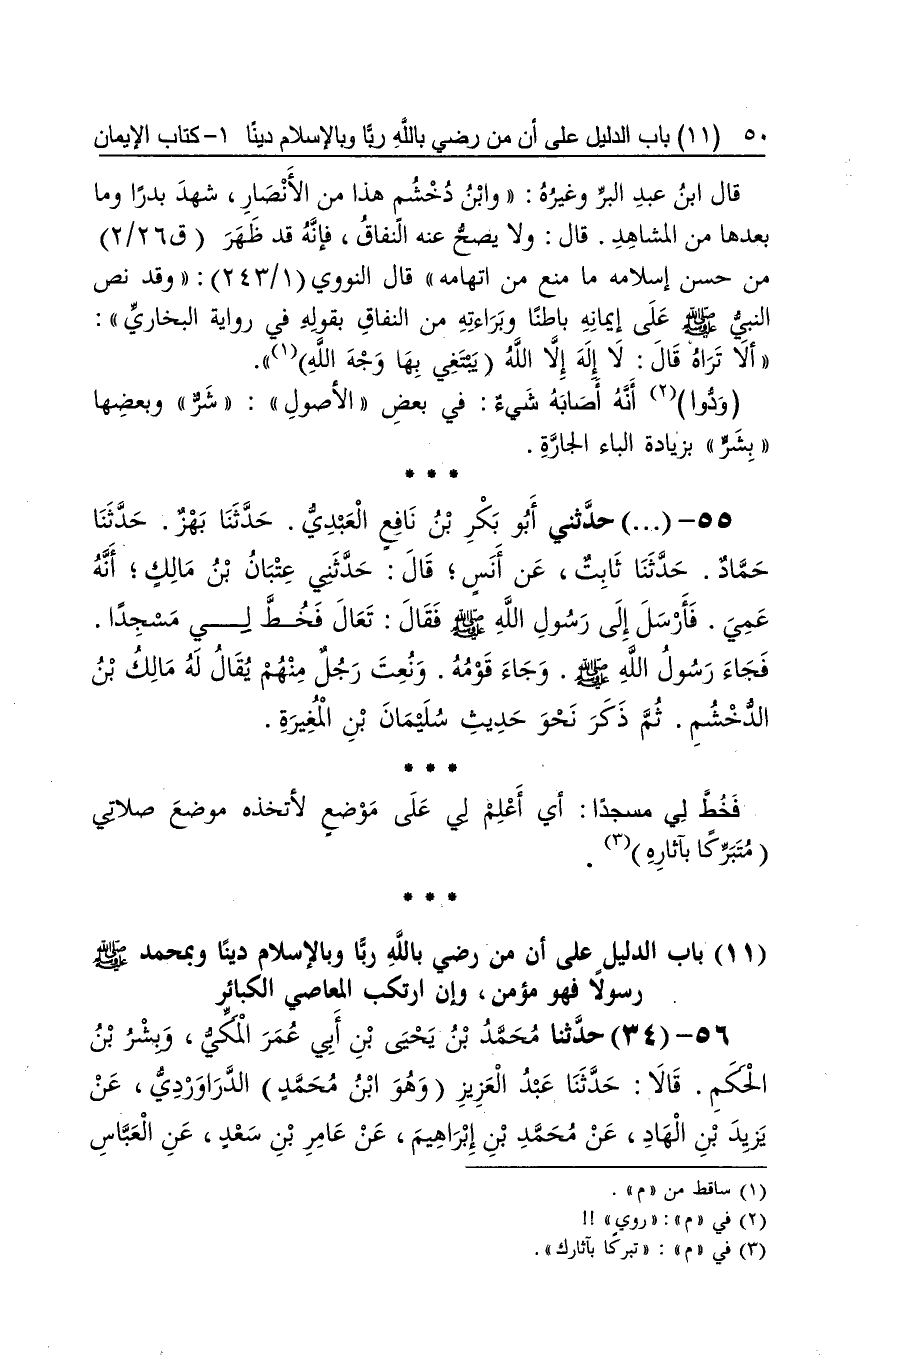 ٥٠ (١١) باب الدليل على أن من رضي باللَّهِ ربًّا وبالإسلام دينًا ١- كتاب الإيمان
قال ابنُ عبدِ البرِّ وغيرُهُ : « وابْنُ دُخْشُمٍ هذا من الأَنْصَارِ ، شهدَ بدرًا وما
بعدها من المشاهِدِ . قال : ولا يصحُّ عنه النِّفاقُ ، فإنَّهُ قد ظَهَرَ ( ق٢/٢٦)
من حسن إسلامه ما منع من اتهامه» قال النووي (٢٤٣/١) : « وقد نص
النبيُّ ﷺ عَلَى إيمانِهِ باطنًا وبَرَاءتِهِ من النفاقِ بقولِهِ في رواية البخاريِّ » :
« أَلَا تَرَاهُ قَالَ : لَا إِلَهَ إِلَّا اللَّهُ ( يَبْتَغِي بِهَا وَجْهَ اللَّهِ)(١)».
(وَدُّوا)(٢) أَنَّهُ أَصَابَهُ شَيءٌ : في بعضِ « الأصولِ » : « شَرٌّ » وبعضِها
« بِشَرٍّ » بزيادة الباء الجارَّةِ .
* * *
٥٥- (...) حدَّثني أَبُو بَكْرِ بْنُ نَافِعٍ الْعَبْدِيُّ . حَدَّثَنَا بَهْزٌ . حَدَّثَنَا
حَمَّادٌ . حَدَّثَنَا ثَابِتٌ ، عَن أَنَسٍ ؛ قَالَ : حَدَّثَنِي عِتْبَانُ بْنُ مَالِكٍ ؛ أَنَّهُ
عَمِيَ . فَأَرْسَلَ إِلَى رَسُولِ اللَّهِ ﷺ فَقَالَ : تَعَالَ فَخُـطَّ لِـــي مَسْجِدًا .
فَجَاءَ رَسُولُ اللَّهِ ﷺ . وَجَاءَ قَوْمُهُ . وَنُعِتَ رَجُلٌ مِنْهُمْ يُقَالُ لَهُ مَالِكُ بْنُ
الدُّخْشُمِ . ثُمَّ ذَكَرَ نَحْوَ حَدِيثِ سُلَيْمَانَ بْنِ الْمُغِيرَةِ .
* * *
فَخُطَّ لِي مسجدًا : أي أَعْلِمْ لِي عَلَى مَوْضعٍ لأتخذه موضعَ صلاتِي
( مُتَبَرِّكًا بآثارِهِ )(٣) .
* * *
(١١) باب الدليل على أن من رضي باللَّهِ ربًّا وبالإسلام دينًا وبمحمد ﷺ
رسولًا فهو مؤمن ، وإن ارتكب المعاصي الكبائر
٥٦- (٣٤) حدَّثنا مُحَمَّدُ بْنُ يَحْيَى بْنِ أَبِي عُمَرَ الْمَكِّيُّ ، وَبِشْرُ بْنُ
الْحَكَمِ . قَالَا : حَدَّثَنَا عَبْدُ الْعَزِيزِ ( وَهُوَ ابْنُ مُحَمَّدٍ ) الدَّرَاوَرْدِيُّ ، عَنْ
يَزِيدَ بْنِ الْهَادِ ، عَنْ مُحَمَّدِ بْنِ إِبْرَاهِيمَ ، عَنْ عَامِرِ بْنِ سَعْدٍ ، عَنِ الْعَبَّاسِ
(١) ساقط من «م» .
(٢) في «م» : «روي» !!
(٣) في «م» : « تبركًا بآثارك» .